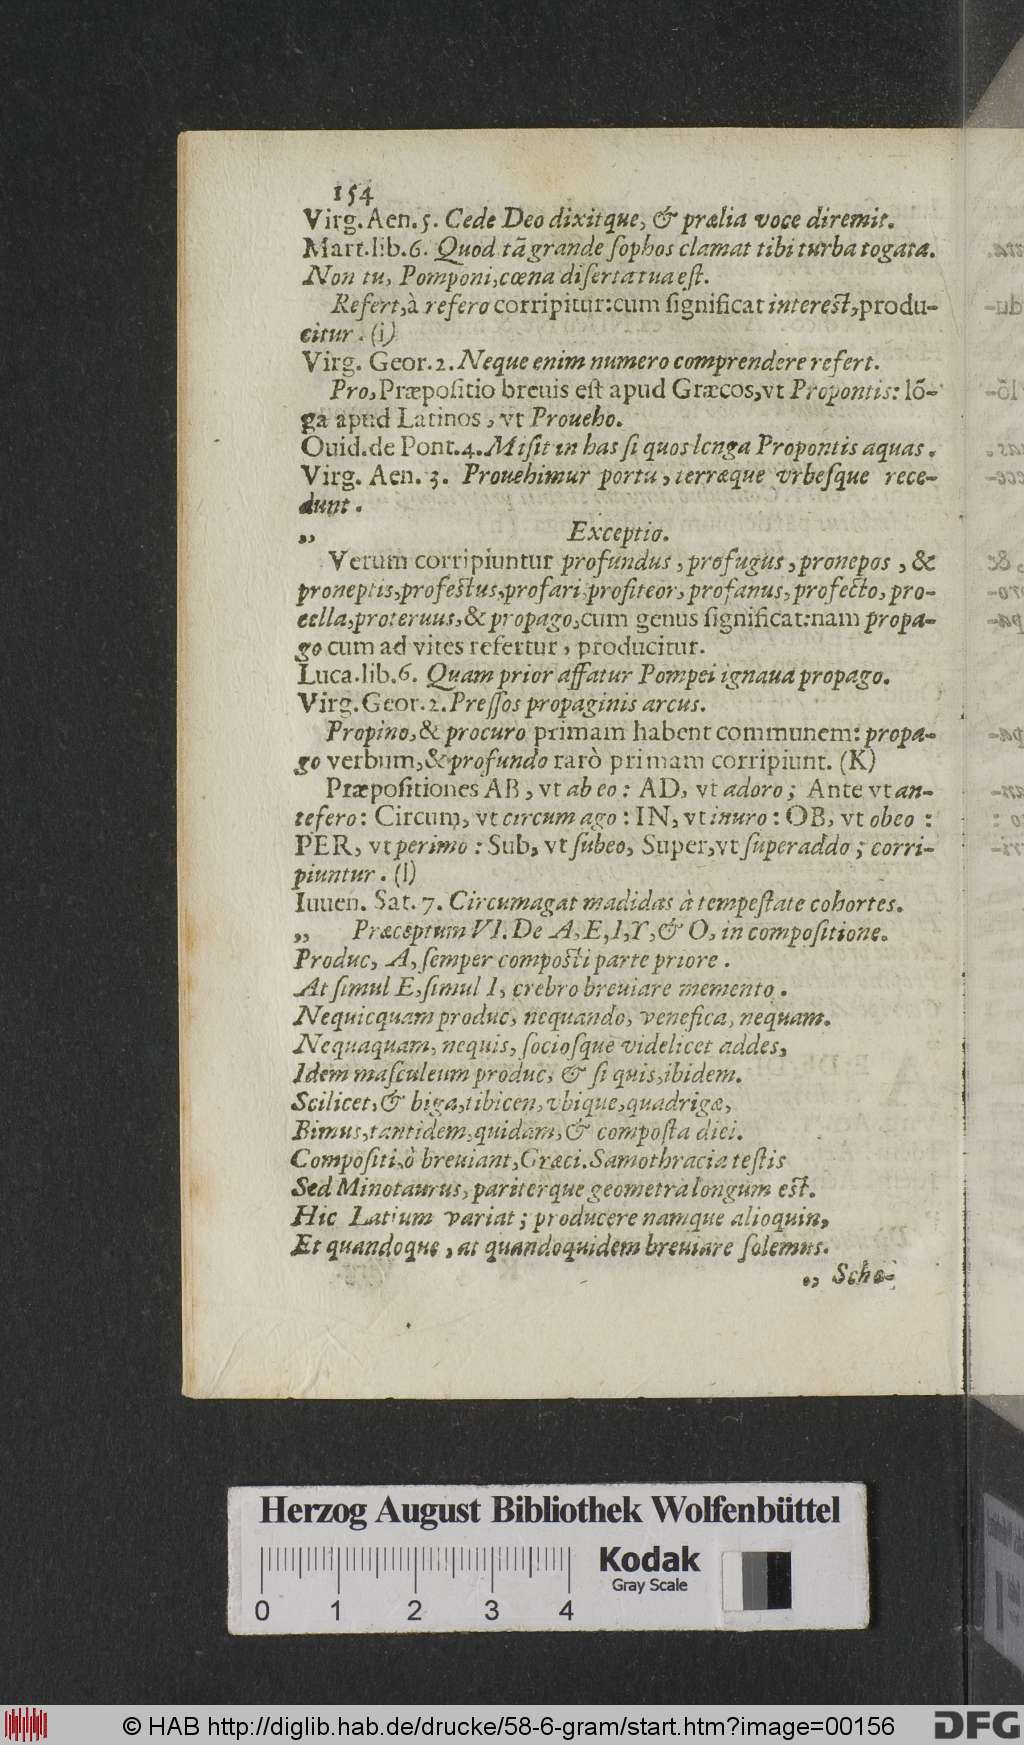 154
Virg. Aen. 5. Cede Deo dixitque, & prælia voce diremit.
Mart. lib. 6. Quod tã grande sophos clamat tibi turba togata.
Non tu, Pomponi, cœna diserta tua est.
Refert, à refero corripitur: cum significat interest, produ-
citur. (i)
Virg. Geor. 2. Neque enim numero comprendere refert.
Pro, Præpositio breuis est apud Græcos, vt Propontis: lõ-
ga apud Latinos, vt Proueho.
Ouid. de Pont. 4. Misit in has si quos longa Propontis aquas.
Virg. Aen. 3. Prouehimur portu, terræque vrbesque rece-
dunt.
„ Exceptio.
Verum corripiuntur profundus, profugus, pronepos, &
proneptis, profestus, profari, profiteor, profanus, profecto, pro-
cella, proteruus, & propago, cum genus significat: nam propa-
go cum ad vites refertur, producitur.
Luca. lib. 6. Quam prior affatur Pompei ignaua propago.
Virg. Geor. 2. Pressos propaginis arcus.
Propino, & procuro primam habent communem: propa-
go verbum, & profundo rarò primam corripiunt. (K)
Præpositiones AB, vt ab eo: AD, vt adoro; Ante vt an-
tefero: Circum, vt circum ago: IN, vt inuro: OB, vt obeo:
PER, vt perimo: Sub, vt subeo, Super, vt superaddo; corri-
piuntur. (l)
Iuuen. Sat. 7. Circumagat madidas à tempestate cohortes.
„ Præceptum VI. De A, E, I, Y, & O, in compositione.
Produc, A, semper composti parte priore.
At simul E, simul I, crebro breuiare memento.
Nequicquam produc, nequando, venefica, nequam.
Nequaquam, nequis, sociosque videlicet addes,
Idem masculeum produc, & si quis, ibidem.
Scilicet, & biga, tibicen, vbique, quadrigæ,
Bimus, tantidem, quidam, & composta diei.
Compositi, o breuiant, Græci. Samothracia testis
Sed Minotaurus, pariterque geometra longum est.
Hic Latium variat; producere namque alioquin,
Et quandoque, at quandoquidem breuiare solemus.
„ Scho-
Herzog August Bibliothek Wolfenbüttel
Kodak
Gray Scale
0 1 2 3 4
© HAB http://diglib.hab.de/drucke/58-6-gram/start.htm?image=00156
DFG